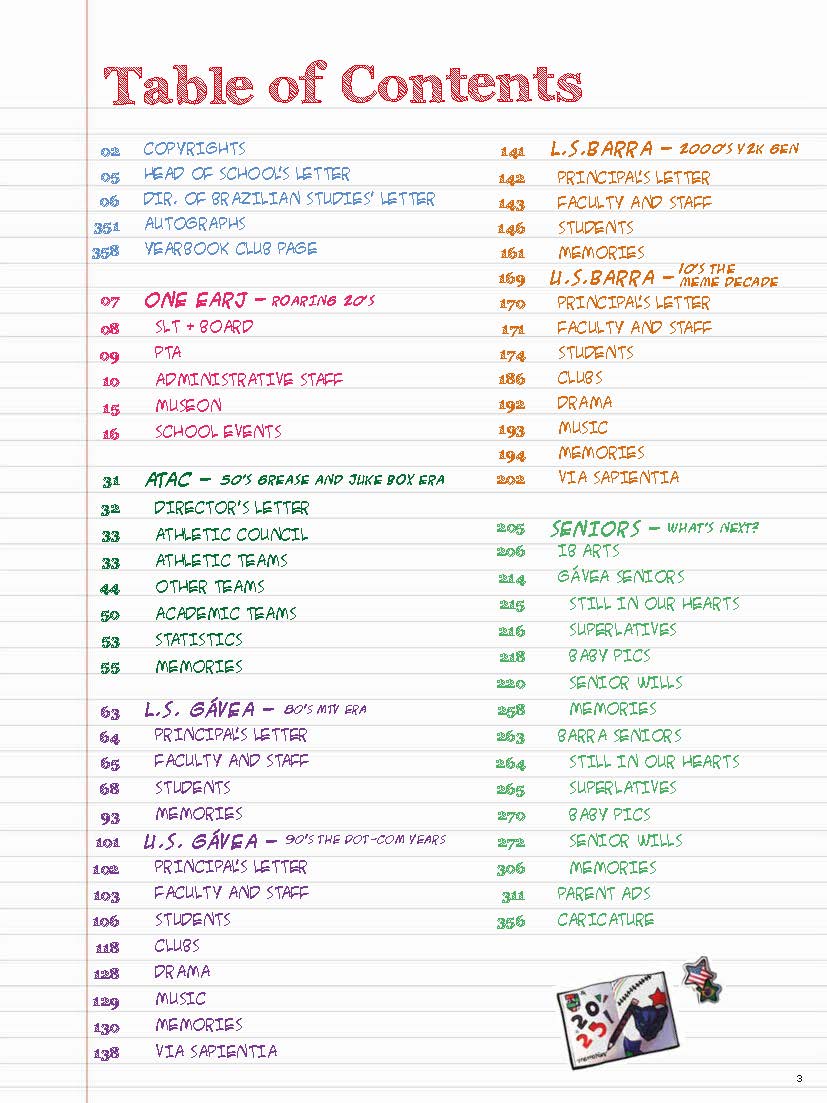 Table of Contents
02 COPYRIGHTS
05 HEAD OF SCHOOL'S LETTER
06 DIR. OF BRAZILIAN STUDIES' LETTER
351 AUTOGRAPHS
358 YEARBOOK CLUB PAGE
07 ONE EARJ – ROARING 20'S
08 SLT + BOARD
09 PTA
10 ADMINISTRATIVE STAFF
15 MUSEON
16 SCHOOL EVENTS
31 ATAC – 50'S GREASE AND JUKE BOX ERA
32 DIRECTOR'S LETTER
33 ATHLETIC COUNCIL
33 ATHLETIC TEAMS
44 OTHER TEAMS
50 ACADEMIC TEAMS
53 STATISTICS
55 MEMORIES
63 L.S. GÁVEA – 80'S MTV ERA
64 PRINCIPAL'S LETTER
65 FACULTY AND STAFF
68 STUDENTS
93 MEMORIES
101 U.S. GÁVEA – 90'S THE DOT-COM YEARS
102 PRINCIPAL'S LETTER
103 FACULTY AND STAFF
106 STUDENTS
118 CLUBS
128 DRAMA
129 MUSIC
130 MEMORIES
138 VIA SAPIENTIA
141 L.S.BARRA – 2000'S Y2K GEN
142 PRINCIPAL'S LETTER
143 FACULTY AND STAFF
146 STUDENTS
161 MEMORIES
169 U.S.BARRA – 10'S THE
MEME DECADE
170 PRINCIPAL'S LETTER
171 FACULTY AND STAFF
174 STUDENTS
186 CLUBS
192 DRAMA
193 MUSIC
194 MEMORIES
202 VIA SAPIENTIA
205 SENIORS – WHAT'S NEXT?
206 IB ARTS
214 GÁVEA SENIORS
215 STILL IN OUR HEARTS
216 SUPERLATIVES
218 BABY PICS
220 SENIOR WILLS
258 MEMORIES
263 BARRA SENIORS
264 STILL IN OUR HEARTS
265 SUPERLATIVES
270 BABY PICS
272 SENIOR WILLS
306 MEMORIES
311 PARENT ADS
356 CARICATURE
20
25!
memories
3